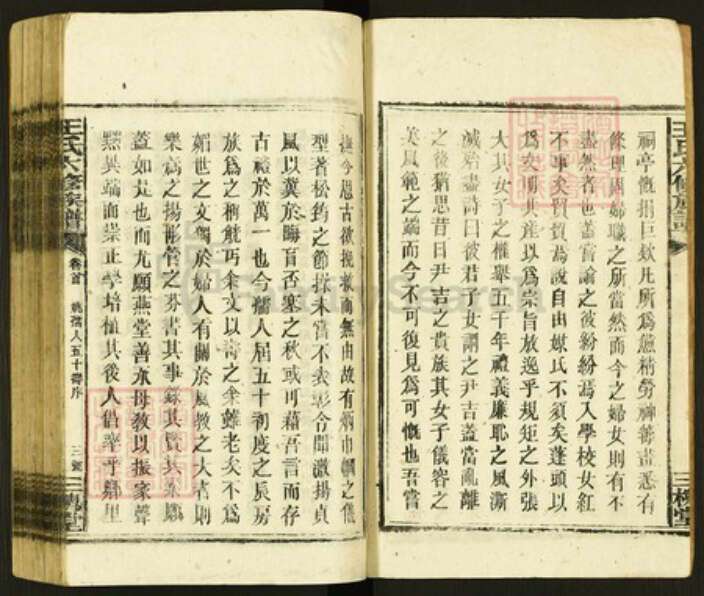 祠亭慨捐巨欵凡所爲應精勞神籌畫悉有
條理固婦職之所當然而今之婦女則有不
盡然者也蓋嘗諭之彼紛紛焉入學校女紅
不事矣貿貿焉說自由媒氏不須矣蓬頭以
爲文明共產以爲宗旨放逸乎規矩之外張
大其女子之權舉五千年禮義廉恥之風澌
滅殆盡詩曰彼君子女謂之尹吉蓋當亂離
之後猶思昔日尹吉之貴族其女子儀容之
美風範之端而今不可復見爲可慨也吾嘗
撫今思古欲挽救而無由故有炳巾幗之儀
型著松筠之節操未嘗不表彰令聞激揚貞
風以冀於晦盲否塞之秋或可藉吾言而存
古禮於萬一也今孺人屆五十初度之辰房
族爲之稱觥丐余文以壽之余雖老矣不爲
媚世之文獨於婦人有關於風教之大者則
樂爲之揚彤管之芬書其事錄其賢其
蓋如是也而尤願燕堂善承母教以振家聲
黜異端而崇正學培植其後人倡率乎鄰里
王氏六修族譜
卷首
姚孺人五十壽序
三
三槐堂
王氏六修族譜
三槐堂